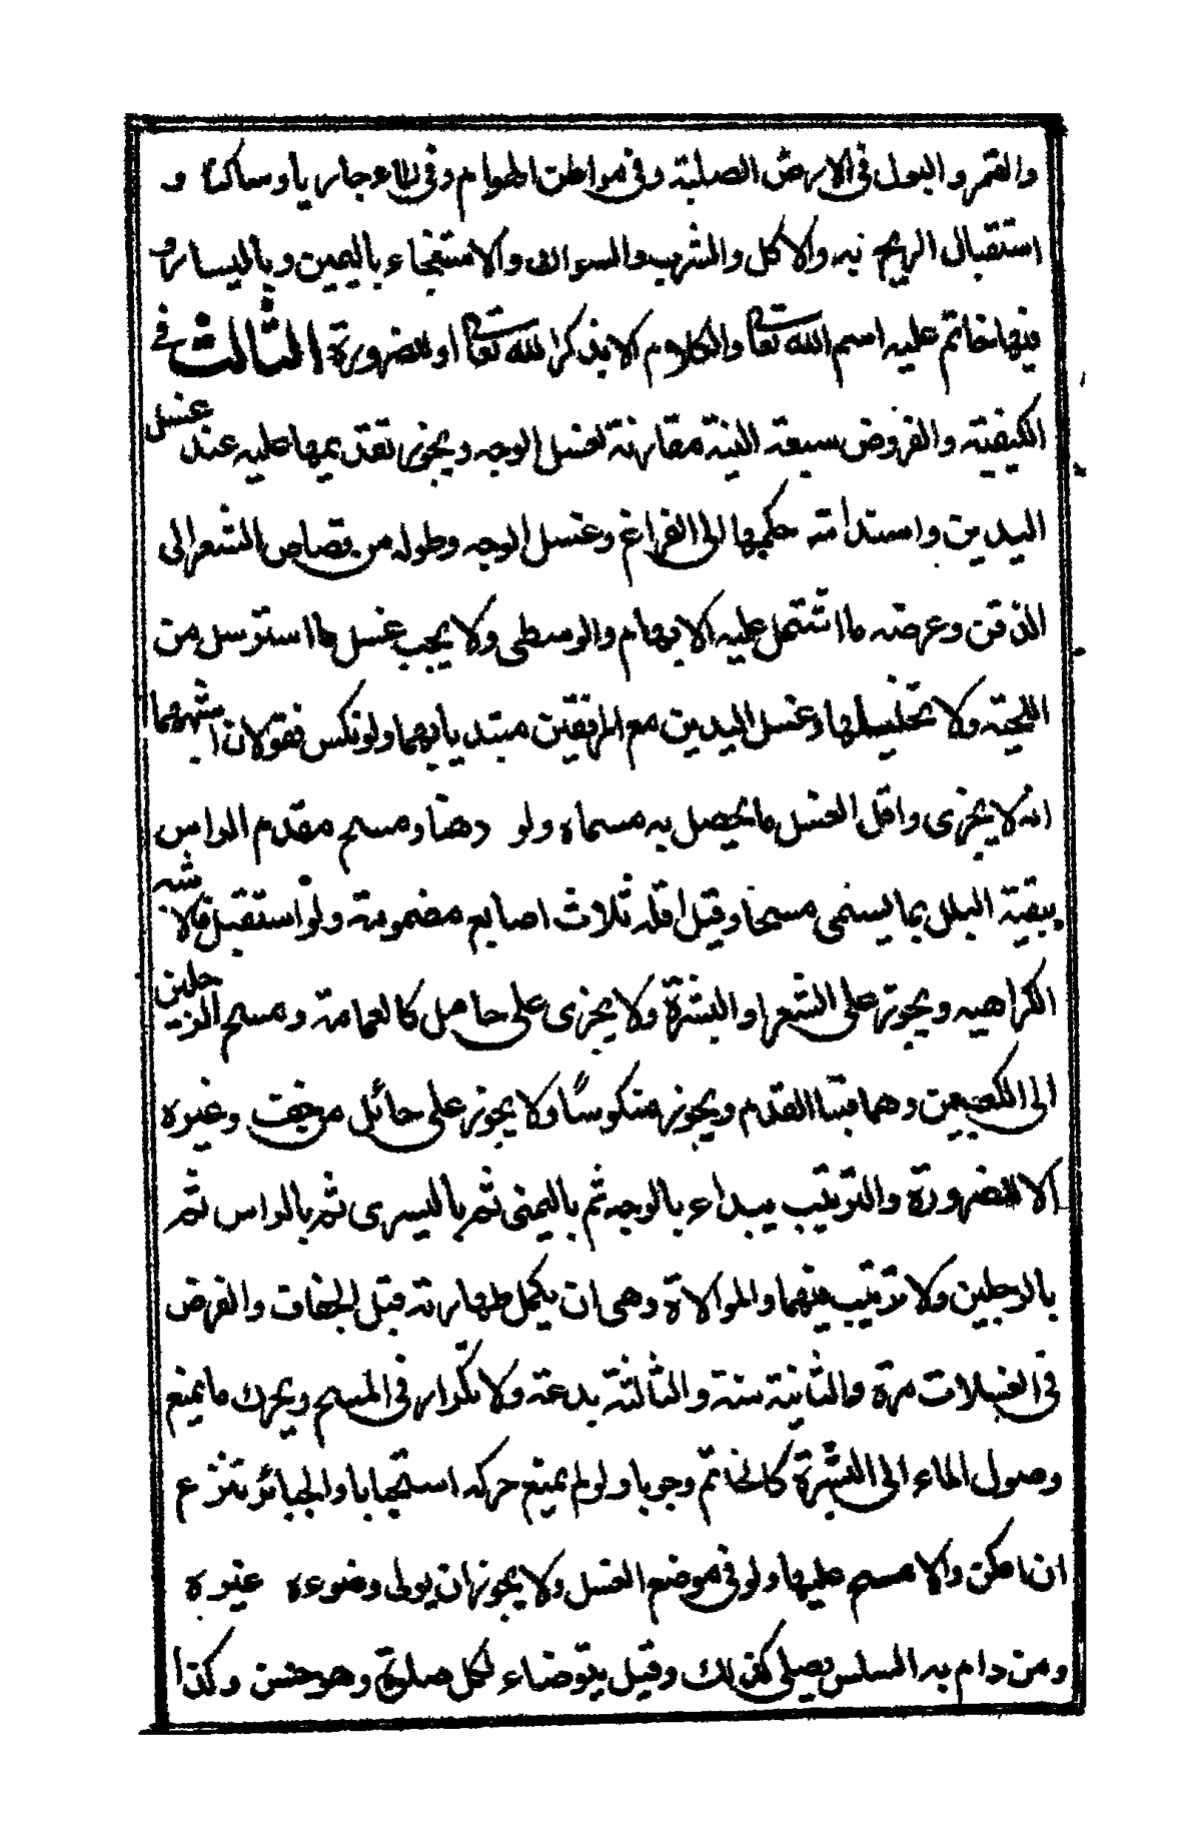 والقمر والبول في الارض الصلبة وفي مواطن الهوام وفي الماء جاريا وساكنا و
استقبال الريح به والاكل والشرب والسواك والاستنجاء باليمين وباليسار و
فيها خاتم عليه اسم الله تعا والكلام الا بذكر الله تعا او للضرورة الثالث في
الكيفيته والفروض سبعة النية مقارنة لغسل الوجه ويجوز تقديمها عليه عند غسل
اليدين واستدامته حكمها الى الفراغ وغسل الوجه وطوله من قصاص الشعر الى
الذقن وعرضه ما اشتمل عليه الابهام والوسطى ولا يجب غسل ما استرسل من
اللحيته ولا تخليلها وغسل اليدين مع المرفقين مبتديا بهما ولو نكس فقولان اشهرهما
انه لا يجزى واقل الغسل ما يحصل به مسماه ولو دهنا ومسح مقدم الراس
ببقية البلل بما يسمى مسحا وقيل اقله ثلاث اصابع مضمومة ولو استقبل فالاشبه
الكراهيه ويجوز على الشعر او البشرة ولا يجزى على حامل كالعمامة ومسح الرجلين
الى الكعبين وهما قبتا القدم ويجوز منكوسًا ولا يجوز على حائل من خف وغيره
الا للضرورة والترتيب يبداء بالوجه ثم باليمنى ثم باليسرى ثم بالراس ثم
بالرجلين ولا ترتيب بينهما والموالاة وهى ان يكمل طهارته قبل الجفاف والفرض
في الغسلات مرة والثانية سنة والثالثة بدعة ولا تكرار في المسح ويحرك ما يمنع
وصول الماء الى البشرة كالخاتم وجوبا ولو لم يمنع حركه استحبابا والجبائر تنزع
ان امكن والا مسح عليها ولو في موضع الغسل ولا يجوز ان يولى وضوءه غيره
ومن دام به السلس يصلى كذلك وقيل يتوضاء لكل صلوة وهو حسن وكذا